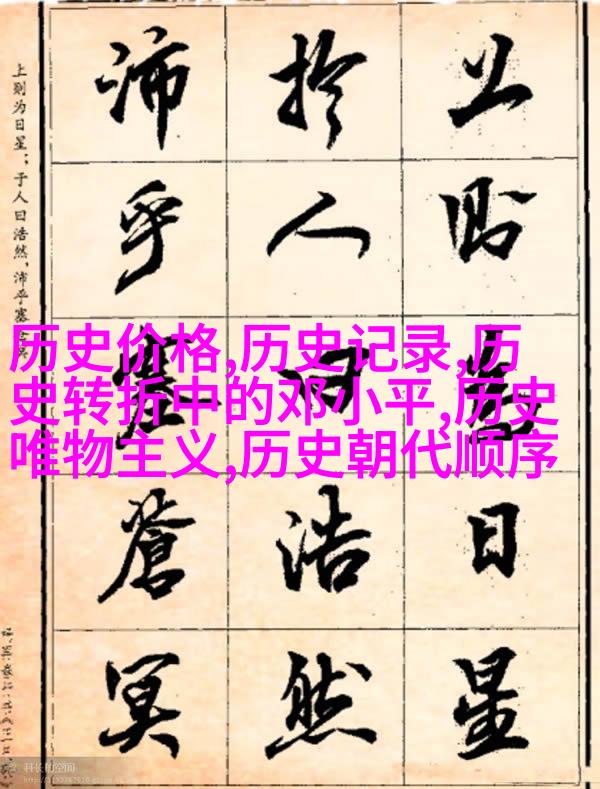 上则为日星；于人曰浩然，沛乎塞
上則為日星
於人曰浩然
沛乎塞蒼冥
历史价格,历史记录,历
史转折中的邓小平,历史
唯物主义,历史朝代顺序
科长的空间